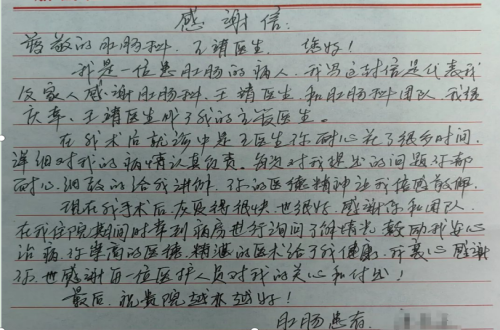 感谢信:
尊敬的肛肠科、王靖医生、您好!
我是一位患肛肠的病人,我写这封信是代表我
及家人感谢肛肠科、王靖医生和肛肠科团队,我很
庆幸、王靖医生成了我的主管医生。
在我术后就诊中是王医生你耐心花了很多时间,
详细对我的病情认真负责。每次对我提出的问题你都
耐心、细致的给我讲解,你的医德精神让我倍感敬佩。
现在我手术后,恢复得很快,也很好,感谢你和团队,
在我住院期间时常到病房进行询问了解情况鼓励我安心
治病,你崇高的医德,精湛的医术给了我健康,我衷心感谢
你,也感谢每一位医护人员对我的关心和付出!
最后,祝贵院越来越好!
肛肠患者: